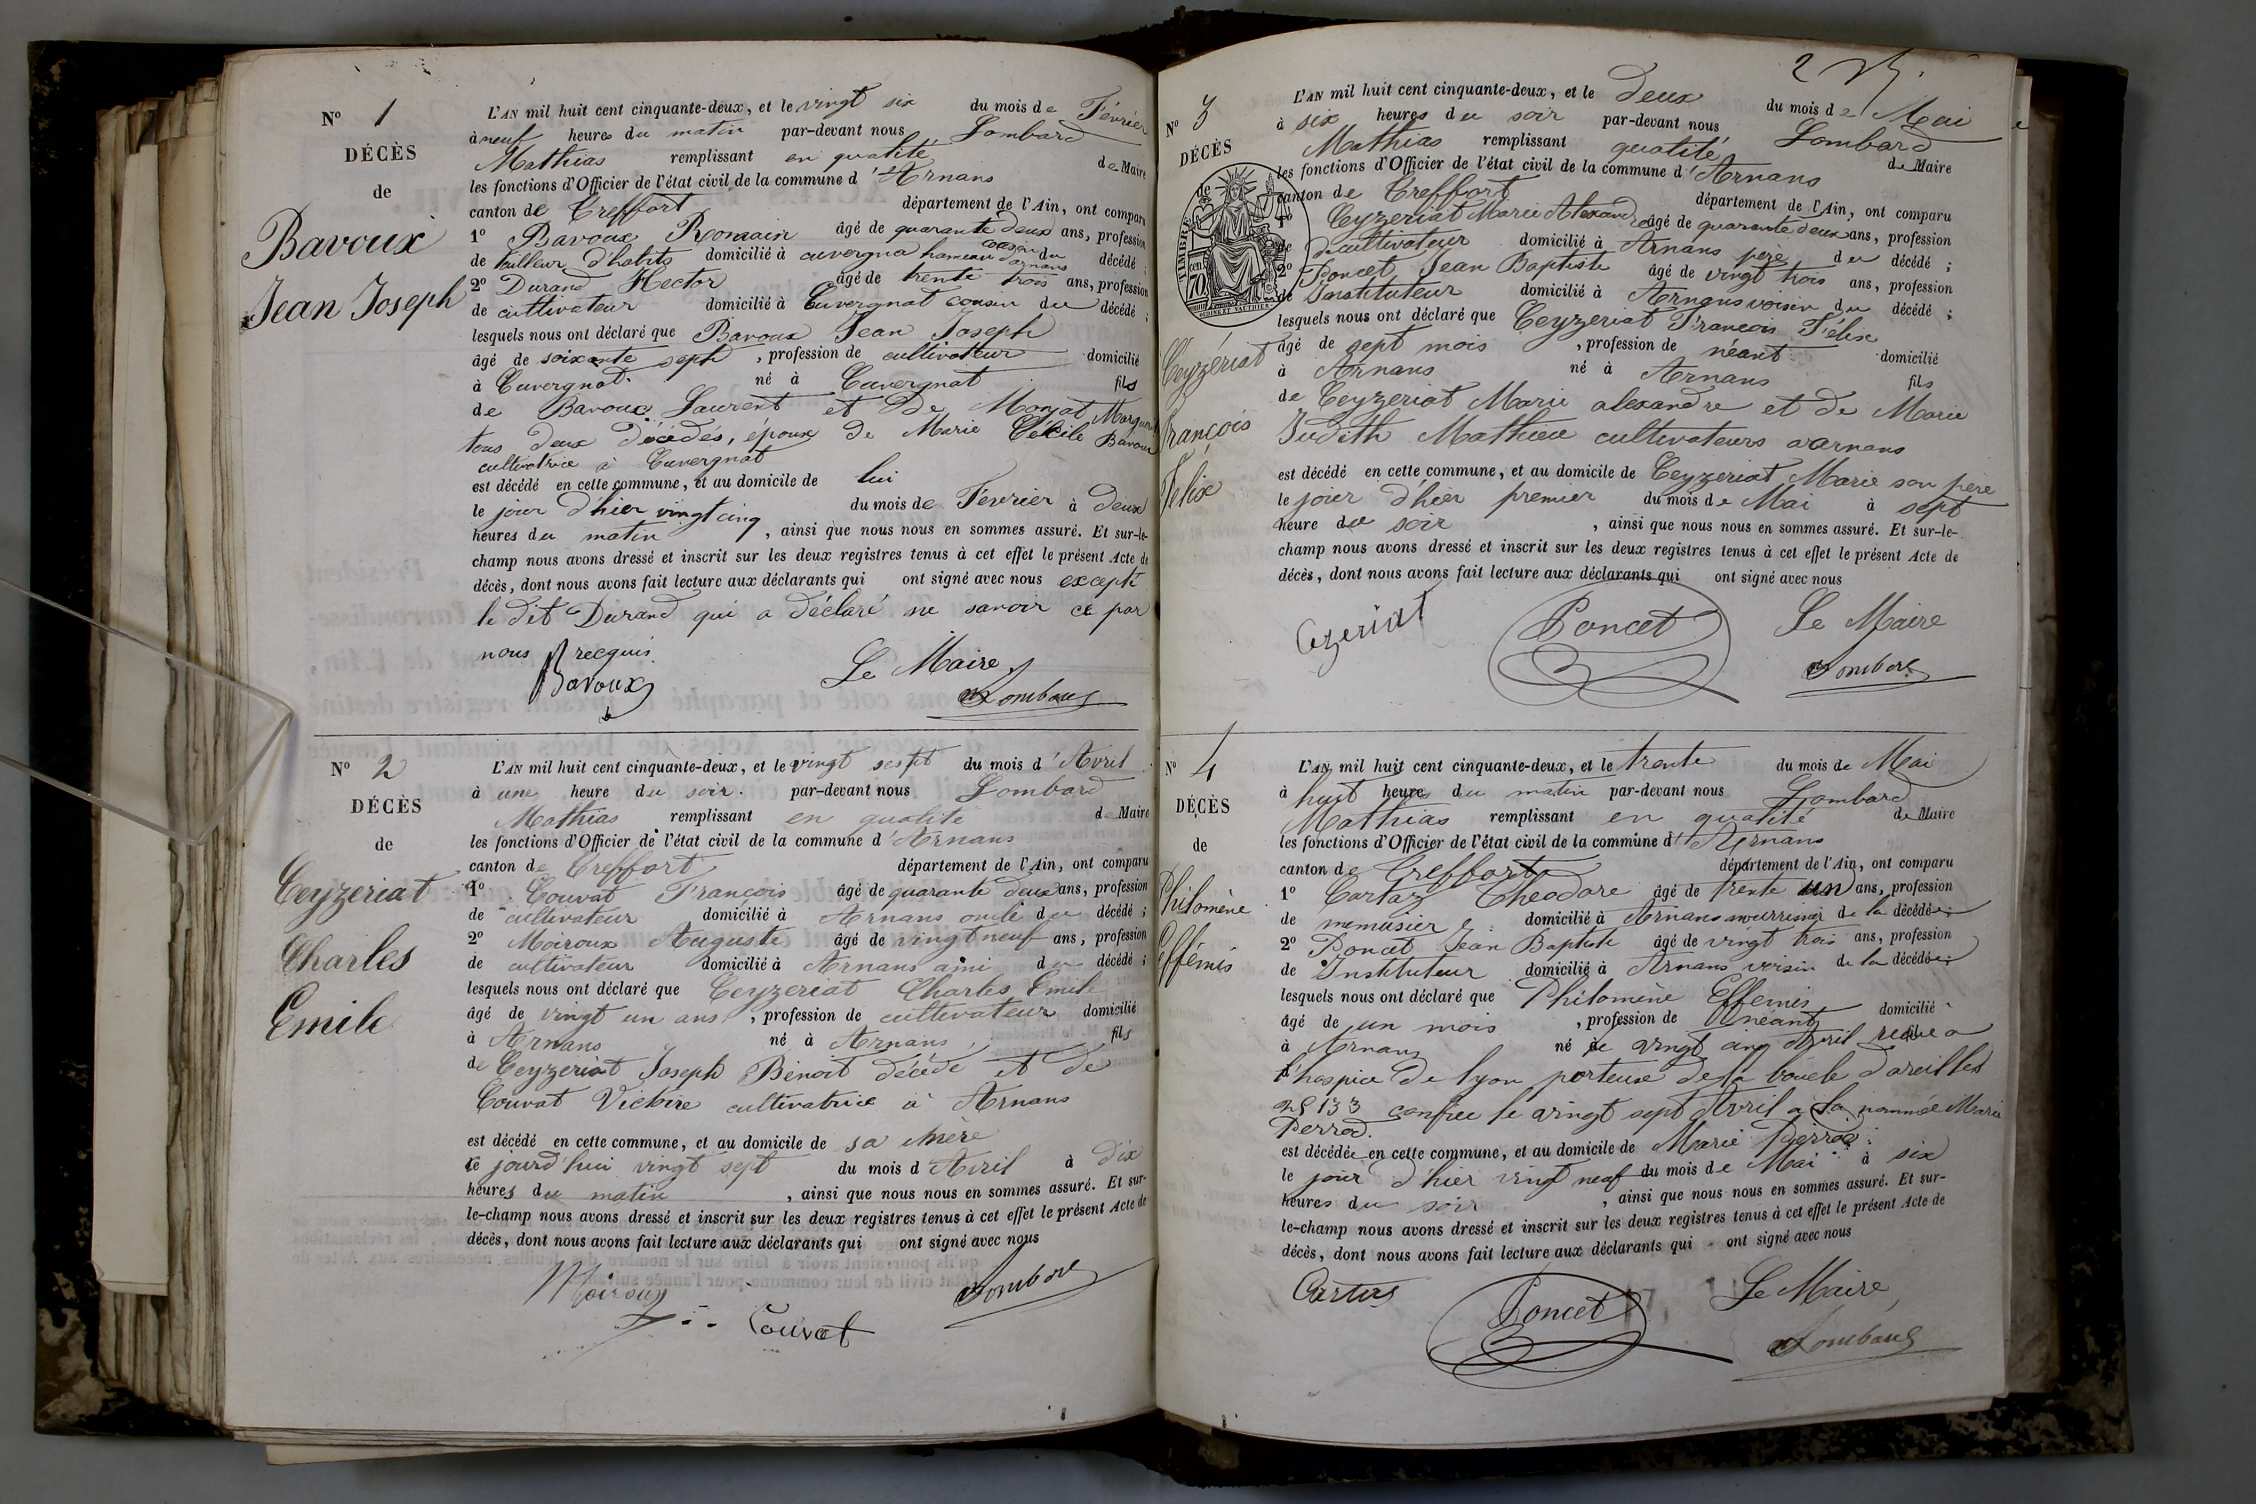 N° 1
DÉCÈS
de
Bavoux
Jean Joseph
L'AN mil huit cent cinquante-deux, et le vingt six du mois de Février
à neuf heures du matin par-devant nous Lombard
Mathias remplissant en qualité de Maire
les fonctions d'Officier de l'état civil de la commune d'Arnans
canton de Treffort département de l'Ain, ont comparu
1° Bavoux Romain âgé de quarante deux ans, profession
de tailleur d'habits domicilié à cuvergna hameau d'arnans cousin du décédé ;
2° Durand Hector âgé de trente trois ans, profession
de cultivateur domicilié à Cuvergnat cousin du décédé ;
lesquels nous ont déclaré que Bavoux Jean Joseph
âgé de soixante seph , profession de cultivateur domicilié
à Cuvergnat. né à Cuvergnat fils
de Bavoux Laurent et de Monjat
tous deux décédés, époux de Marie Cécile Bavoux
cultivatrice à Cuvergnat
est décédé en cette commune, et au domicile de lui
le jour d'hier vingt cinq du mois de Février à deux
heures du matin , ainsi que nous nous en sommes assuré. Et sur-le-
champ nous avons dressé et inscrit sur les deux registres tenus à cet effet le présent Acte de
décès, dont nous avons fait lecture aux déclarants qui ont signé avec nous excepté
le dit Durand qui a déclaré ne savoir ce par
nous recquis
Bavoux Le Maire
Lombard
N° 2
DÉCÈS
de
Ceyzeriat
Charles
Emile
L'AN mil huit cent cinquante-deux, et le vingt sept du mois d'Avril
à une heure du soir. par-devant nous Lombard
Mathias remplissant en qualité de Maire
les fonctions d'Officier de l'état civil de la commune d'Arnans
canton de Treffort département de l'Ain, ont comparu
1° Couvat François âgé de quarante deux ans, profession
de cultivateur domicilié à Arnans oncle du décédé ;
2° Moiroux Auguste âgé de vingt neuf ans, profession
de cultivateur domicilié à Arnans ami du décédé ;
lesquels nous ont déclaré que Ceyzeriat Charles Emile
âgé de vingt un ans , profession de cultivateur domicilié
à Arnans né à Arnans fils
de Ceyzeriat Joseph Benoit décédé et de
Couvat Victoire cultivatrice à Arnans
est décédé en cette commune, et au domicile de sa mère
ce jourd'hui vingt sept du mois d Avril à dix
heures du matin , ainsi que nous nous en sommes assuré. Et sur-
le-champ nous avons dressé et inscrit sur les deux registres tenus à cet effet le présent Acte de
décès, dont nous avons fait lecture aux déclarants qui ont signé avec nous
Moiroux Lombard
Couvat
N° 3
DÉCÈS
de
TIMBRE
70
Ceyzériat
François
Félix
2
L'AN mil huit cent cinquante-deux, et le deux du mois de Mai
à six heures du soir par-devant nous Lombard
Mathias remplissant qualité de Maire
les fonctions d'Officier de l'état civil de la commune d'Arnans
canton de Treffort département de l'Ain, ont comparu
1° Ceyzeriat Marie Alexandre âgé de quarante deux ans, profession
de cultivateur domicilié à Arnans père du décédé ;
2° Poncet Jean Baptiste âgé de vingt trois ans, profession
de Instituteur domicilié à Arnans voisin du décédé ;
lesquels nous ont déclaré que Ceyzeriat François Félix
âgé de sept mois , profession de néant domicilié
à Arnans né à Arnans fils
de Ceyzeriat Marie alexandre et de Marie
Judith Mathieu cultivateurs a arnans
est décédé en cette commune, et au domicile de Ceyzeriat Marie son père
le jour d'hier premier du mois de Mai à sept
heure du soir , ainsi que nous nous en sommes assuré. Et sur-le-
champ nous avons dressé et inscrit sur les deux registres tenus à cet effet le présent Acte de
décès, dont nous avons fait lecture aux déclarants qui ont signé avec nous
Cezeriat Poncet Le Maire
Lombard
N° 4
DÉCÈS
de
Philomène
Effémis
L'AN mil huit cent cinquante-deux, et le trente du mois de Mai
à huit heures du matin par-devant nous Lombard
Mathias remplissant en qualité de Maire
les fonctions d'Officier de l'état civil de la commune d'Arnans
canton de Treffort département de l'Ain, ont comparu
1° Cartaz Théodore âgé de trente un ans, profession
de menuisier domicilié à Arnans nourrisier de la décédée ;
2° Poncet Jean Baptiste âgé de vingt trois ans, profession
de Instituteur domicilié à Arnans voisin de la décédée ;
lesquels nous ont déclaré que Philomène Effemis
âgé de un mois , profession de néant domicilié
à Arnans né le vingt cinq Avril a
l'hospice de lyon porteuse de la boucle d'oreilles
n° 133 confiée le vingt sept Avril a la nommée Marie
Perrod.
est décédée en cette commune, et au domicile de Marie Perrod
le jour d'hier vingt neuf du mois de Mai à six
heures du soir , ainsi que nous nous en sommes assuré. Et sur-
le-champ nous avons dressé et inscrit sur les deux registres tenus à cet effet le présent Acte de
décès, dont nous avons fait lecture aux déclarants qui ont signé avec nous
Cartas Poncet Le Maire
Lombard